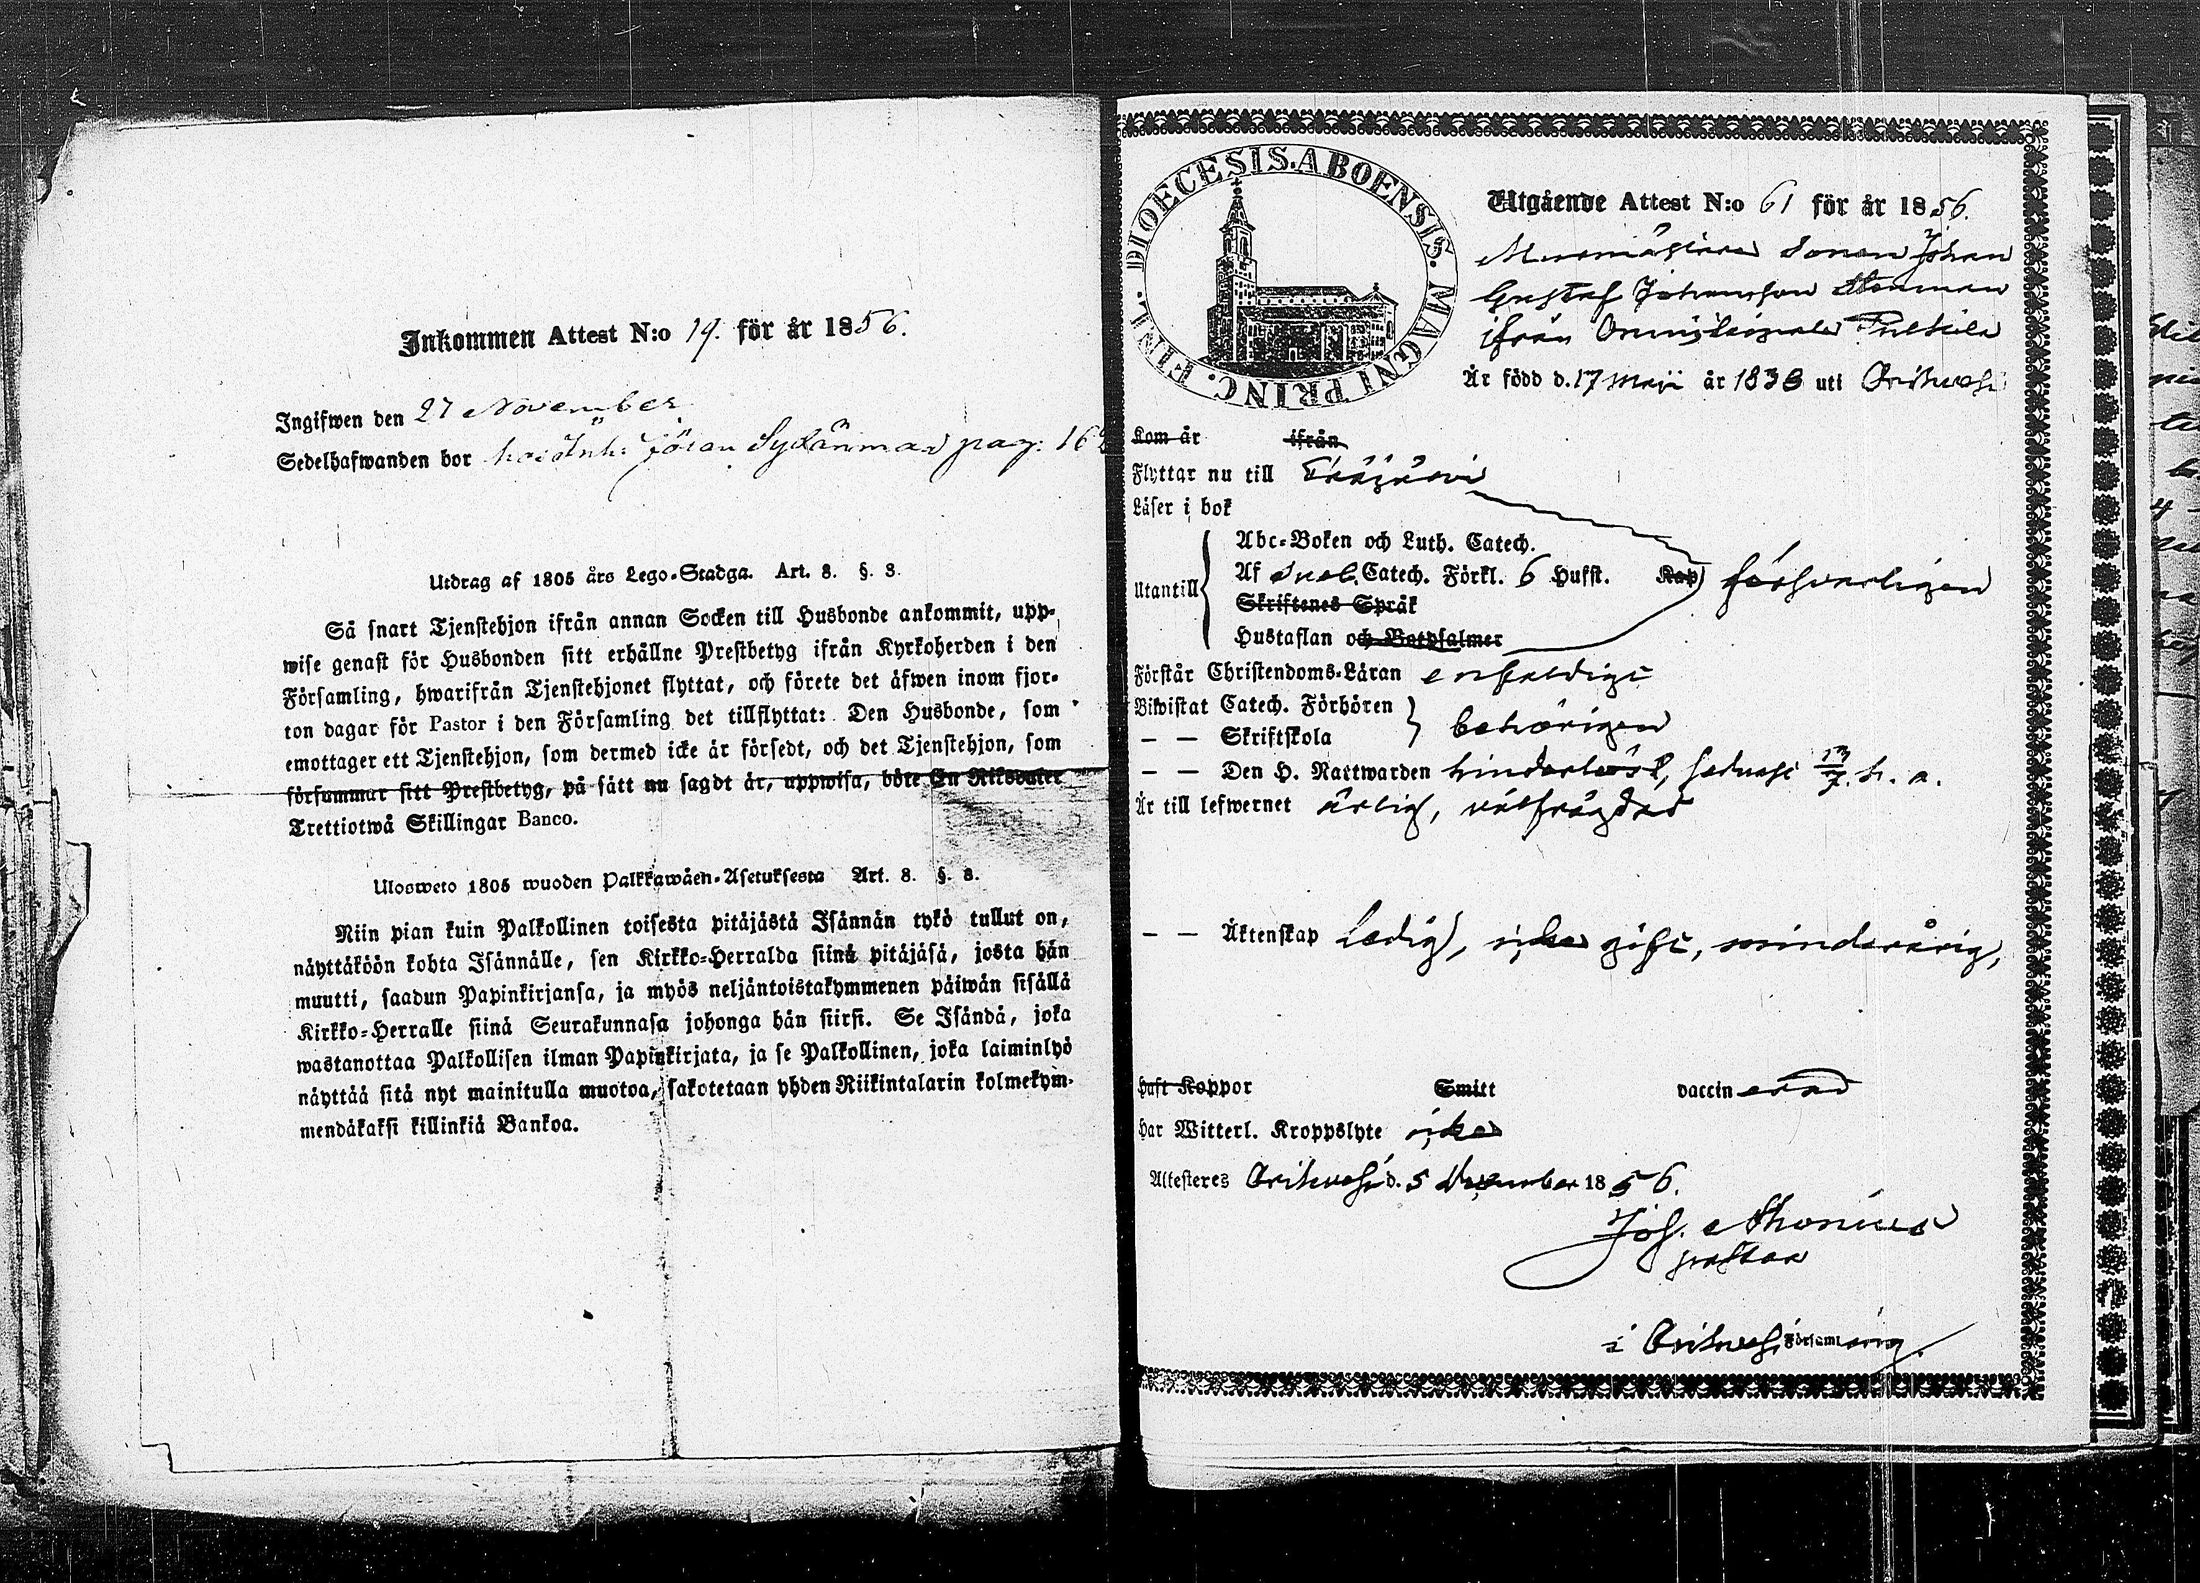 Inkommen Attest N:o 19. för år 1856.
Ingifwen den 27 November
Sedelhafwanden bor hos Inh: Jöran Sydänmaa pag: 16
Utdrag af 1805 års Lego-Stadga. Art. 8. §. 8.
Så snart Tjenstehjon ifrån annan Socken till Husbonde ankommit, upp-
wise genast för Husbonden sitt erhållne Prestbetyg ifrån Kyrkoherden i den
Församling, hwarifrån Tjenstehjonet flyttat, och förete det äfwen inom fjor-
ton dagar för Pastor i den Församling det tillflyttat: Den Husbonde, som
emottager ett Tjenstehjon, som dermed icke är försedt, och det Tjenstehjon, som
försummar sitt Prestbetyg, på sätt nu sagdt är, uppwisa, böte En Riksdaler
Trettiotwå Skillingar Banco.
Ulosweto 1805 wuoden Palkkawäen-Asetuksesta Art. 8. §. 8.
Niin pian kuin Palkollinen toisesta pitäjästä Isännän tykö tullut on,
näyttäköön kohta Isännälle, sen Kirkko-Herralda siinä pitäjäsä, josta hän
muutti, saadun Papinkirjansa, ja myös neljäntoistakymmenen päiwän sisällä
Kirkko-Herralle siinä Seurakunnasa johonga hän siirsi. Se Isändä, joka
wastanottaa Palkollisen ilman Papinkirjata, ja se Palkollinen, joka laiminlyö
näyttää sitä nyt mainitulla muotoa, sakotetaan yhden Riikintalarin kolmekym-
mendäkaksi killinkiä Bankoa.
DIOECESIS. ABOENSIS. MAGNI PRINC. FINL.
Utgående Attest N:o 61 för år 1856.
Murmästare Sonen Johan
Gustaf Johansson
ifrån
Är född d. 17 Maji år 1838 uti Orihvesi
Kom år ifrån
Flyttar nu till
Läser i bok
Abc-Boken och Luth. Catech.
Utantill Af Sveb. Catech. Förkl. 6 Hufst. Kap försvarligen
Skriftenes Språk
Hustaflan och Botpsalmer
Förstår Christendoms-Läran enfaldigt
Biwistat Catech. Förhören
— — Skriftskola behörigen
— — Den H. Nattwarden hinderlöst, sednast 13/7 h. a.
Är till lefwernet ärlig, välfrägdad
— — Äktenskap Ledig, icke gift, minderårig,
Haft Koppor Smitt vaccin erad
Har Witterl. Kroppslyte icke
Attesteres Orihvesi d. 5 November 1856.
Joh.
pastor
i Orihvesi Församling.